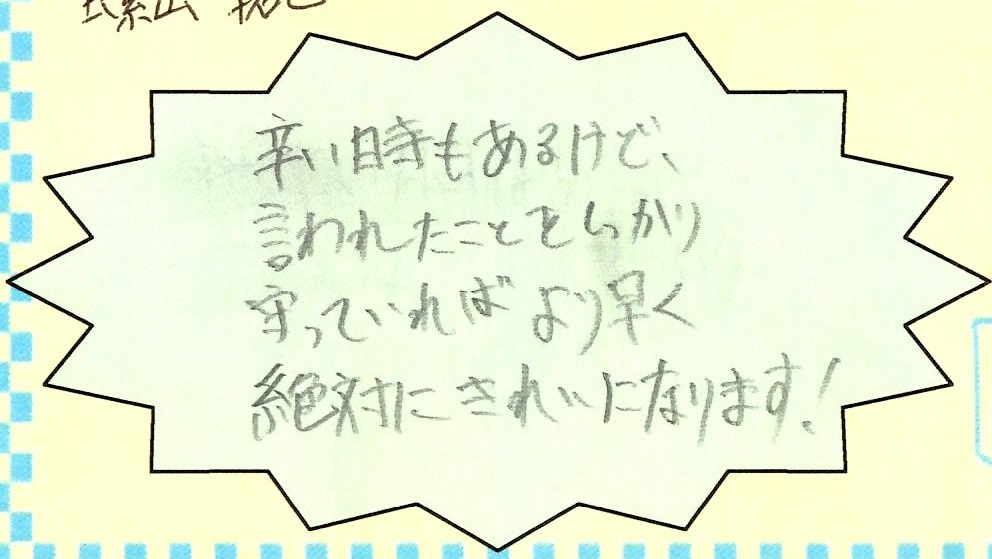 辛い時もあるけど、
言われたことをしっかり
守っていれば より早く
絶対にきれいになります!